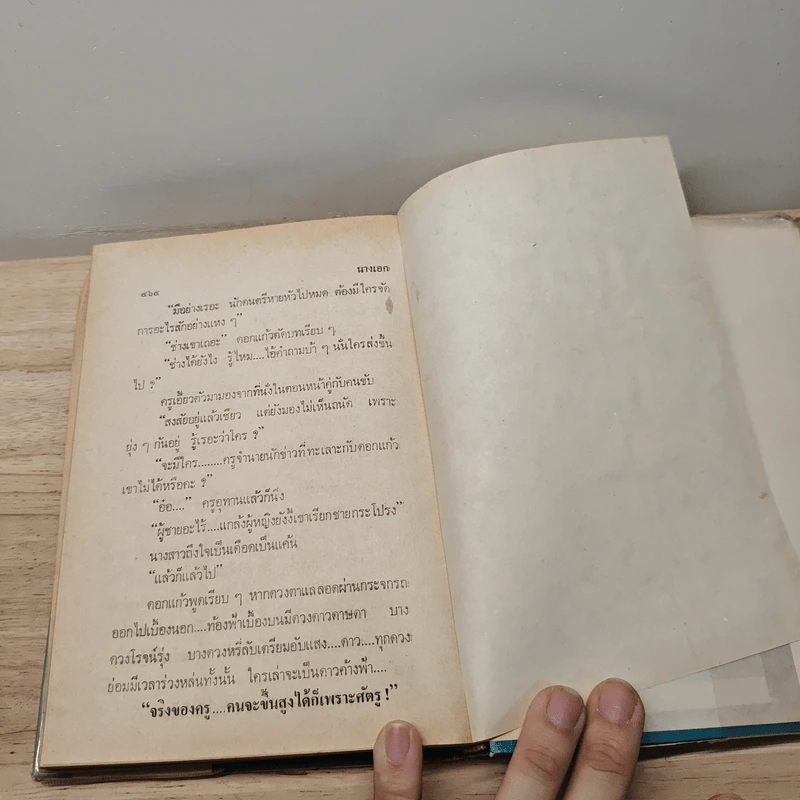 นางเอก
๔๖๔
“มีอย่างเรอะ นักดนตรีหายหัวไปหมด ต้องมีใครจัด
การอะไรสักอย่างแหง ๆ”
“ช่างเขาเถอะ” ดอกแก้วตัดบทเรียบ ๆ
“ช่างได้ยังไง รู้ไหม....ไอ้คำถามบ้า ๆ นั่นใครส่งขึ้น
ไป ?”
ครูเอี้ยวตัวมามองจากที่นั่งในตอนหน้าคู่กับคนขับ
“สงสัยอยู่แล้วเชียว แต่ยังมองไม่เห็นถนัด เพราะ
ยุ่ง ๆ กันอยู่ รู้เรอะว่าใคร ?”
“จะมีใคร........ครูจำนายนักข่าวที่ทะเลาะกับดอกแก้ว
เขาไม่ได้หรือคะ ?”
“อ้อ....” ครูอุทานแล้วก็นิ่ง
“ผู้ชายอะไร้....แกล้งผู้หญิงยังงี้เขาเรียกชายกระโปรง”
นางสาวถึงใจเป็นเดือดเป็นแค้น
“แล้วก็แล้วไป”
ดอกแก้วพูดเรียบ ๆ หากดวงตาแลลอดผ่านกระจกรถ
ออกไปเบื้องนอก....ท้องฟ้าเบื้องบนมีดวงดาวดาษดา บาง
ดวงโรจน์รุ่ง บางดวงหรี่ลับเตรียมอับแสง....ดาว....ทุกดวง
ย่อมมีเวลาร่วงหล่นทั้งนั้น ใครเล่าจะเป็นดาวค้างฟ้า....
“จริงของครู....คนจะขึ้นสูงได้ก็เพราะศัตรู !”